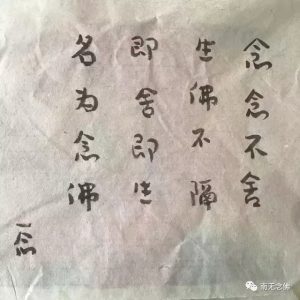 念念不舍
生佛不隔
即舍即生
名为念佛
南无念佛